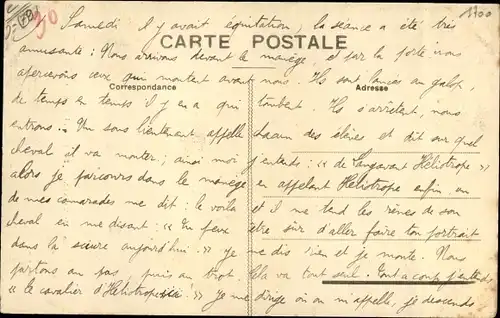 30
1300
Samedi il y avait équitation, la séance a été très
CARTE POSTALE
amusante : Nous arrivons devant le manège, et par la porte nous
apercevons ceux qui montent avant nous. Ils sont lancés au galop,
Correspondance
Adresse
de temps en temps il y en a qui tombent. Ils s'arrêtent, nous
entrons. Un sous lieutenant appelle chacun des élèves et dit sur quel
cheval il va monter ; ainsi moi j'entends : « de Héliotrope »
alors je parcours dans le manège en appelant Héliotrope enfin un
de mes camarades me dit : le voilà et me tend les rênes de son
cheval en me disant : « Tu peux être sûr d'aller faire ton portrait
dans la sciure aujourd'hui. » Je me dis rien et je monte. Nous
partons au pas, puis au trot. Cela va tout seul. Tout à coup j'entends,
« le cavalier d'Héliotrope ici ! » Je me dirige où on m'appelle, je descends